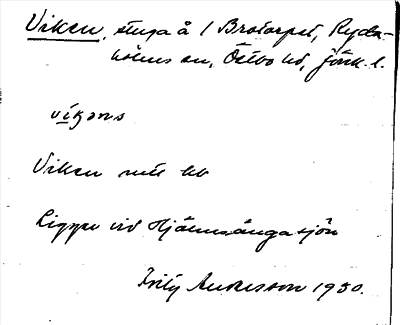 Viken, stuga å 1 Brotorpet, Ryda-
holms sn, Östbo hd, Jönk. l.
víkəns
Viken
Ligger vid Hjälmsångasjön
Fritz Andersson 1930.